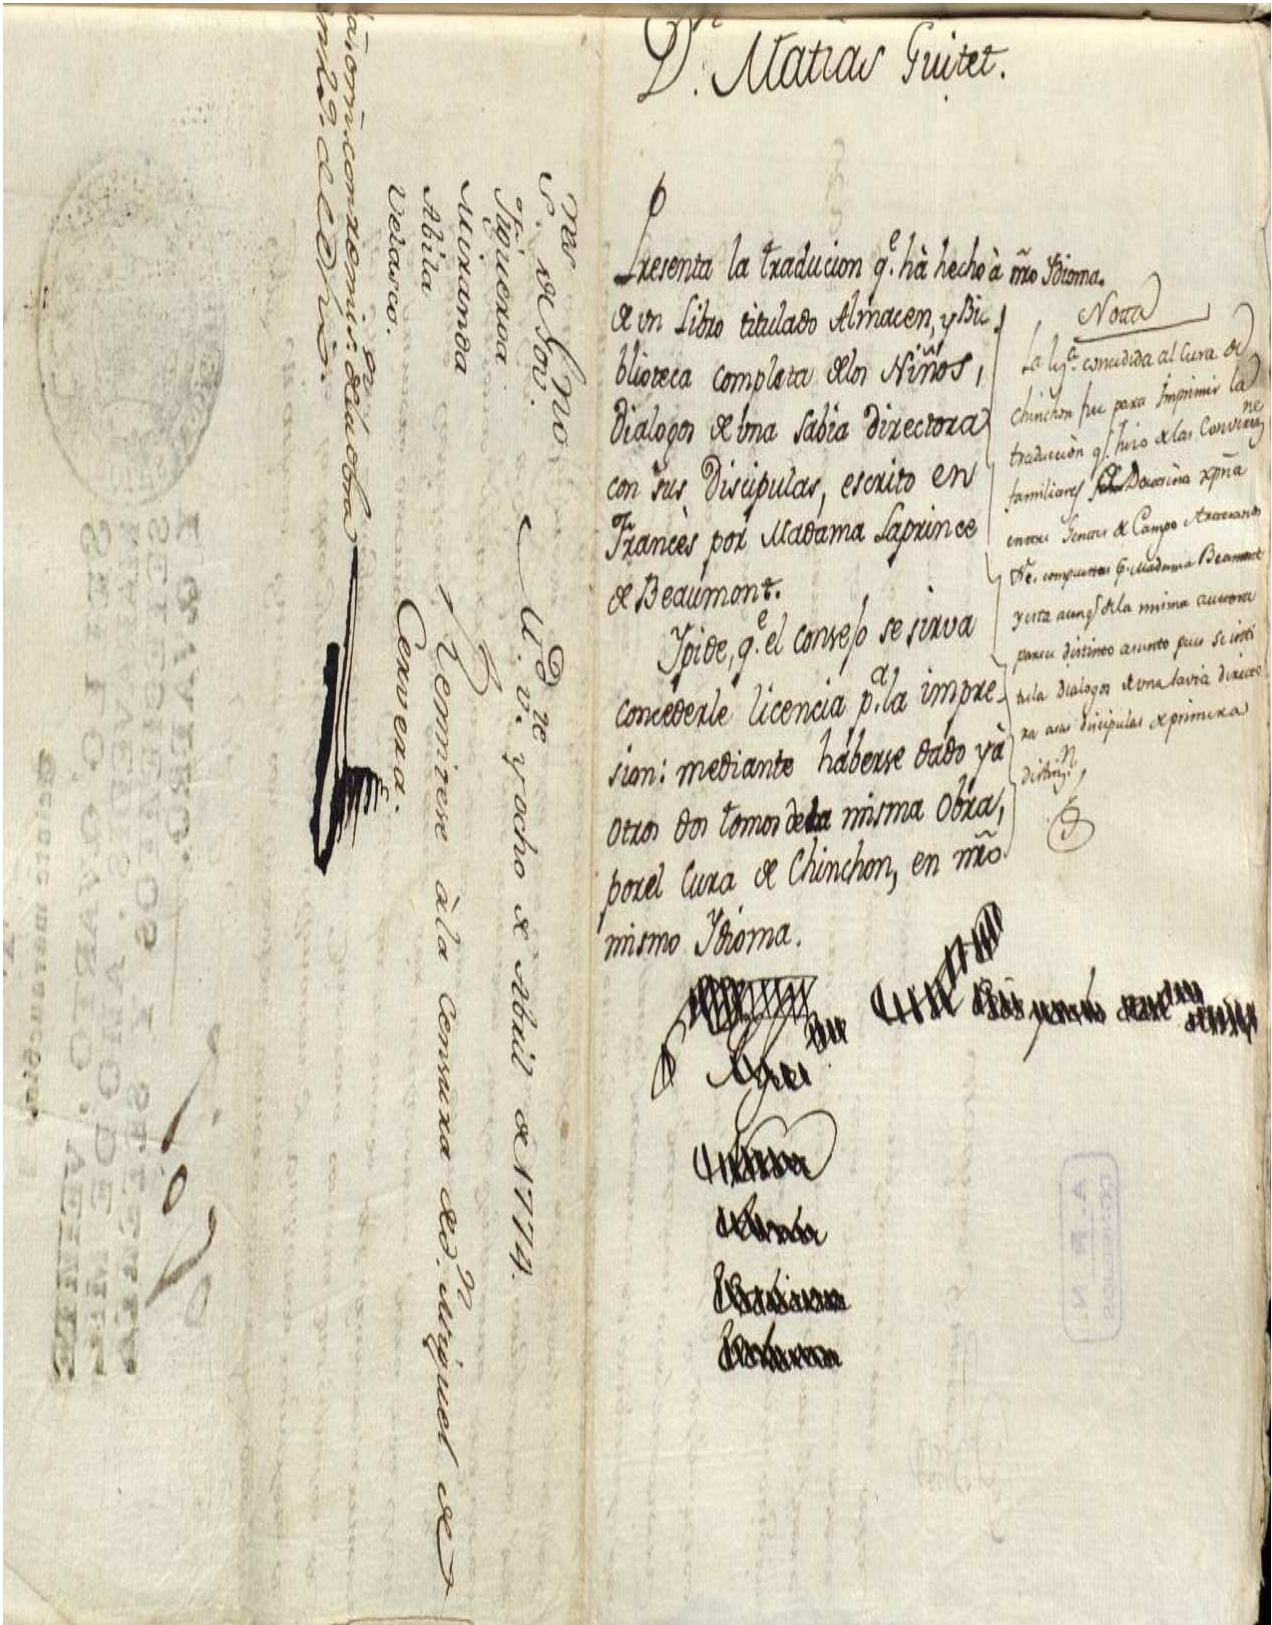 Dn. Matias Guitet.
Presenta la traducion qe. hà hecho à nr̃o Ydioma.
de un Libro titulado Almacen, y Bi-
blioteca completa delos Niños,
Dialogos de una sabia directora
con sus Discipulas, escrito en
Francès por Madama Laprince
de Beaumont.
Ypide, qe. el Consejo se sirva
concederle licencia pa. la impre-
sion: mediante haberse dado yà
otros dos tomos dela misma Obra,
porel Cura de Chinchon, en nr̃o
mismo Ydioma.
Nota
La liza. concedida al Cura de
Chinchon fue para Imprimir la
traducciòn q. hizo de las Conver.nes
familiares de Doctrina xp̃na
entre Gentes de Campo Artesanos
compuestas p. Madama Beaumont
y esta aunq. dela misma autora
parece distinto asunto pues se inti
tula Dialogos de una savia directo
ra asus discipulas de primera
distinzn.
Sres
S. de Gov.no
Figueroa
Miranda
Abila
Velasco.
Md. y ocho de Abril de 1774.
Remitese àla censura de Dn. Miguel de
Cervera.
dela obra
SELLO QVARTO, VEINTE
MARAVEDIS, AÑO DE MIL
SETECIENTOS Y SETENTA
Y QVATRO.
A. H. N.
CONSEJOS